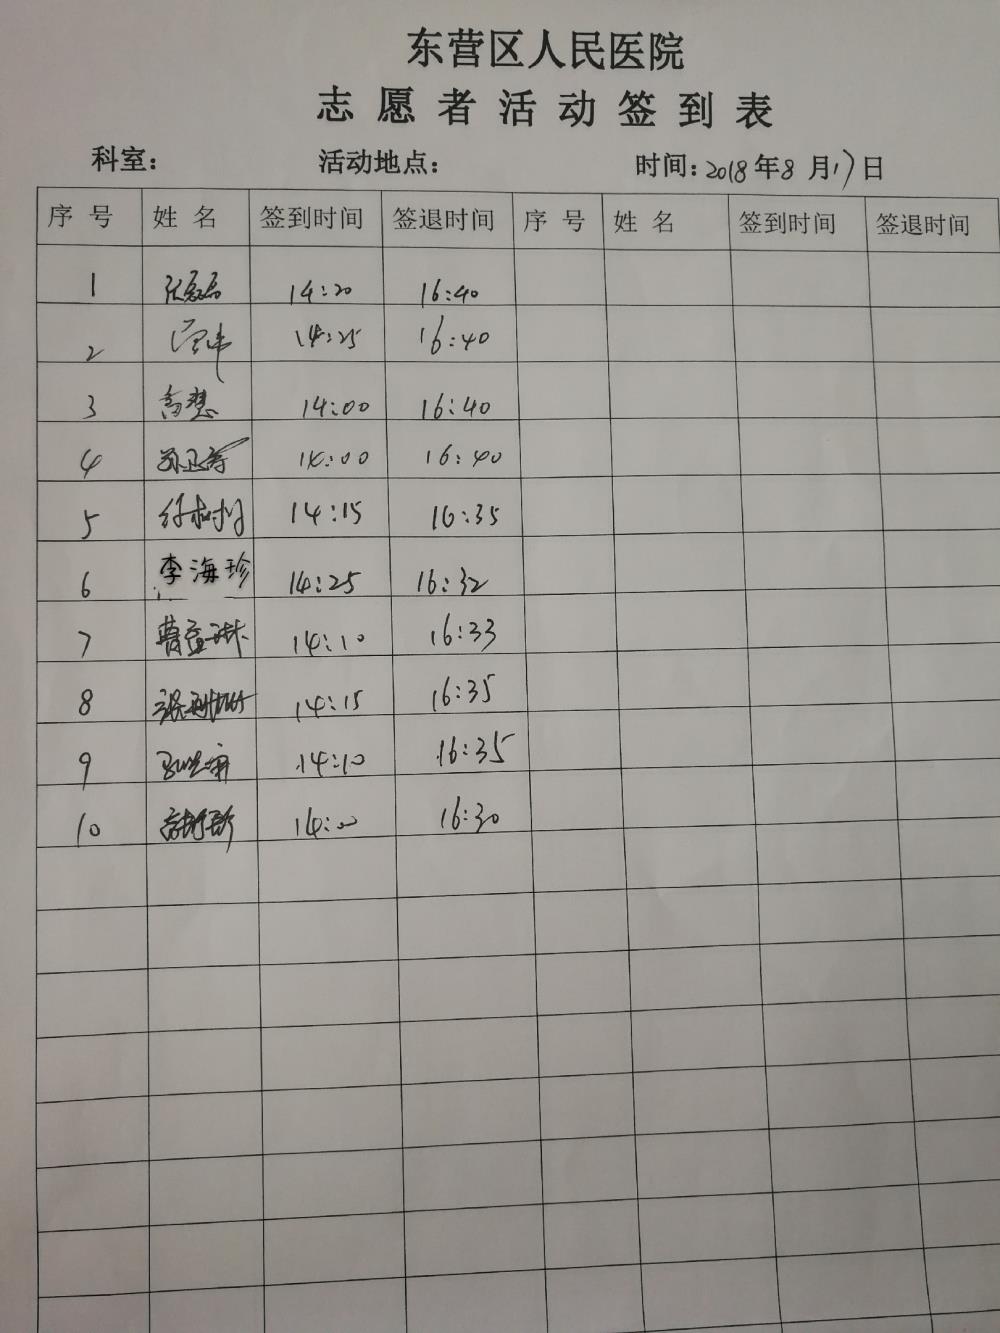 东营区人民医院
志愿者活动签到表
科室： 活动地点： 时间：2018年8月17日
序号 姓名 签到时间 签退时间 序号 姓名 签到时间 签退时间
1 14:20 16:40
2 14:25 16:40
3 高慧 14:00 16:40
4 14:00 16:40
5 14:15 16:35
6 李海珍 14:25 16:32
7 14:10 16:33
8 14:15 16:35
9 14:10 16:35
10 14:00 16:30